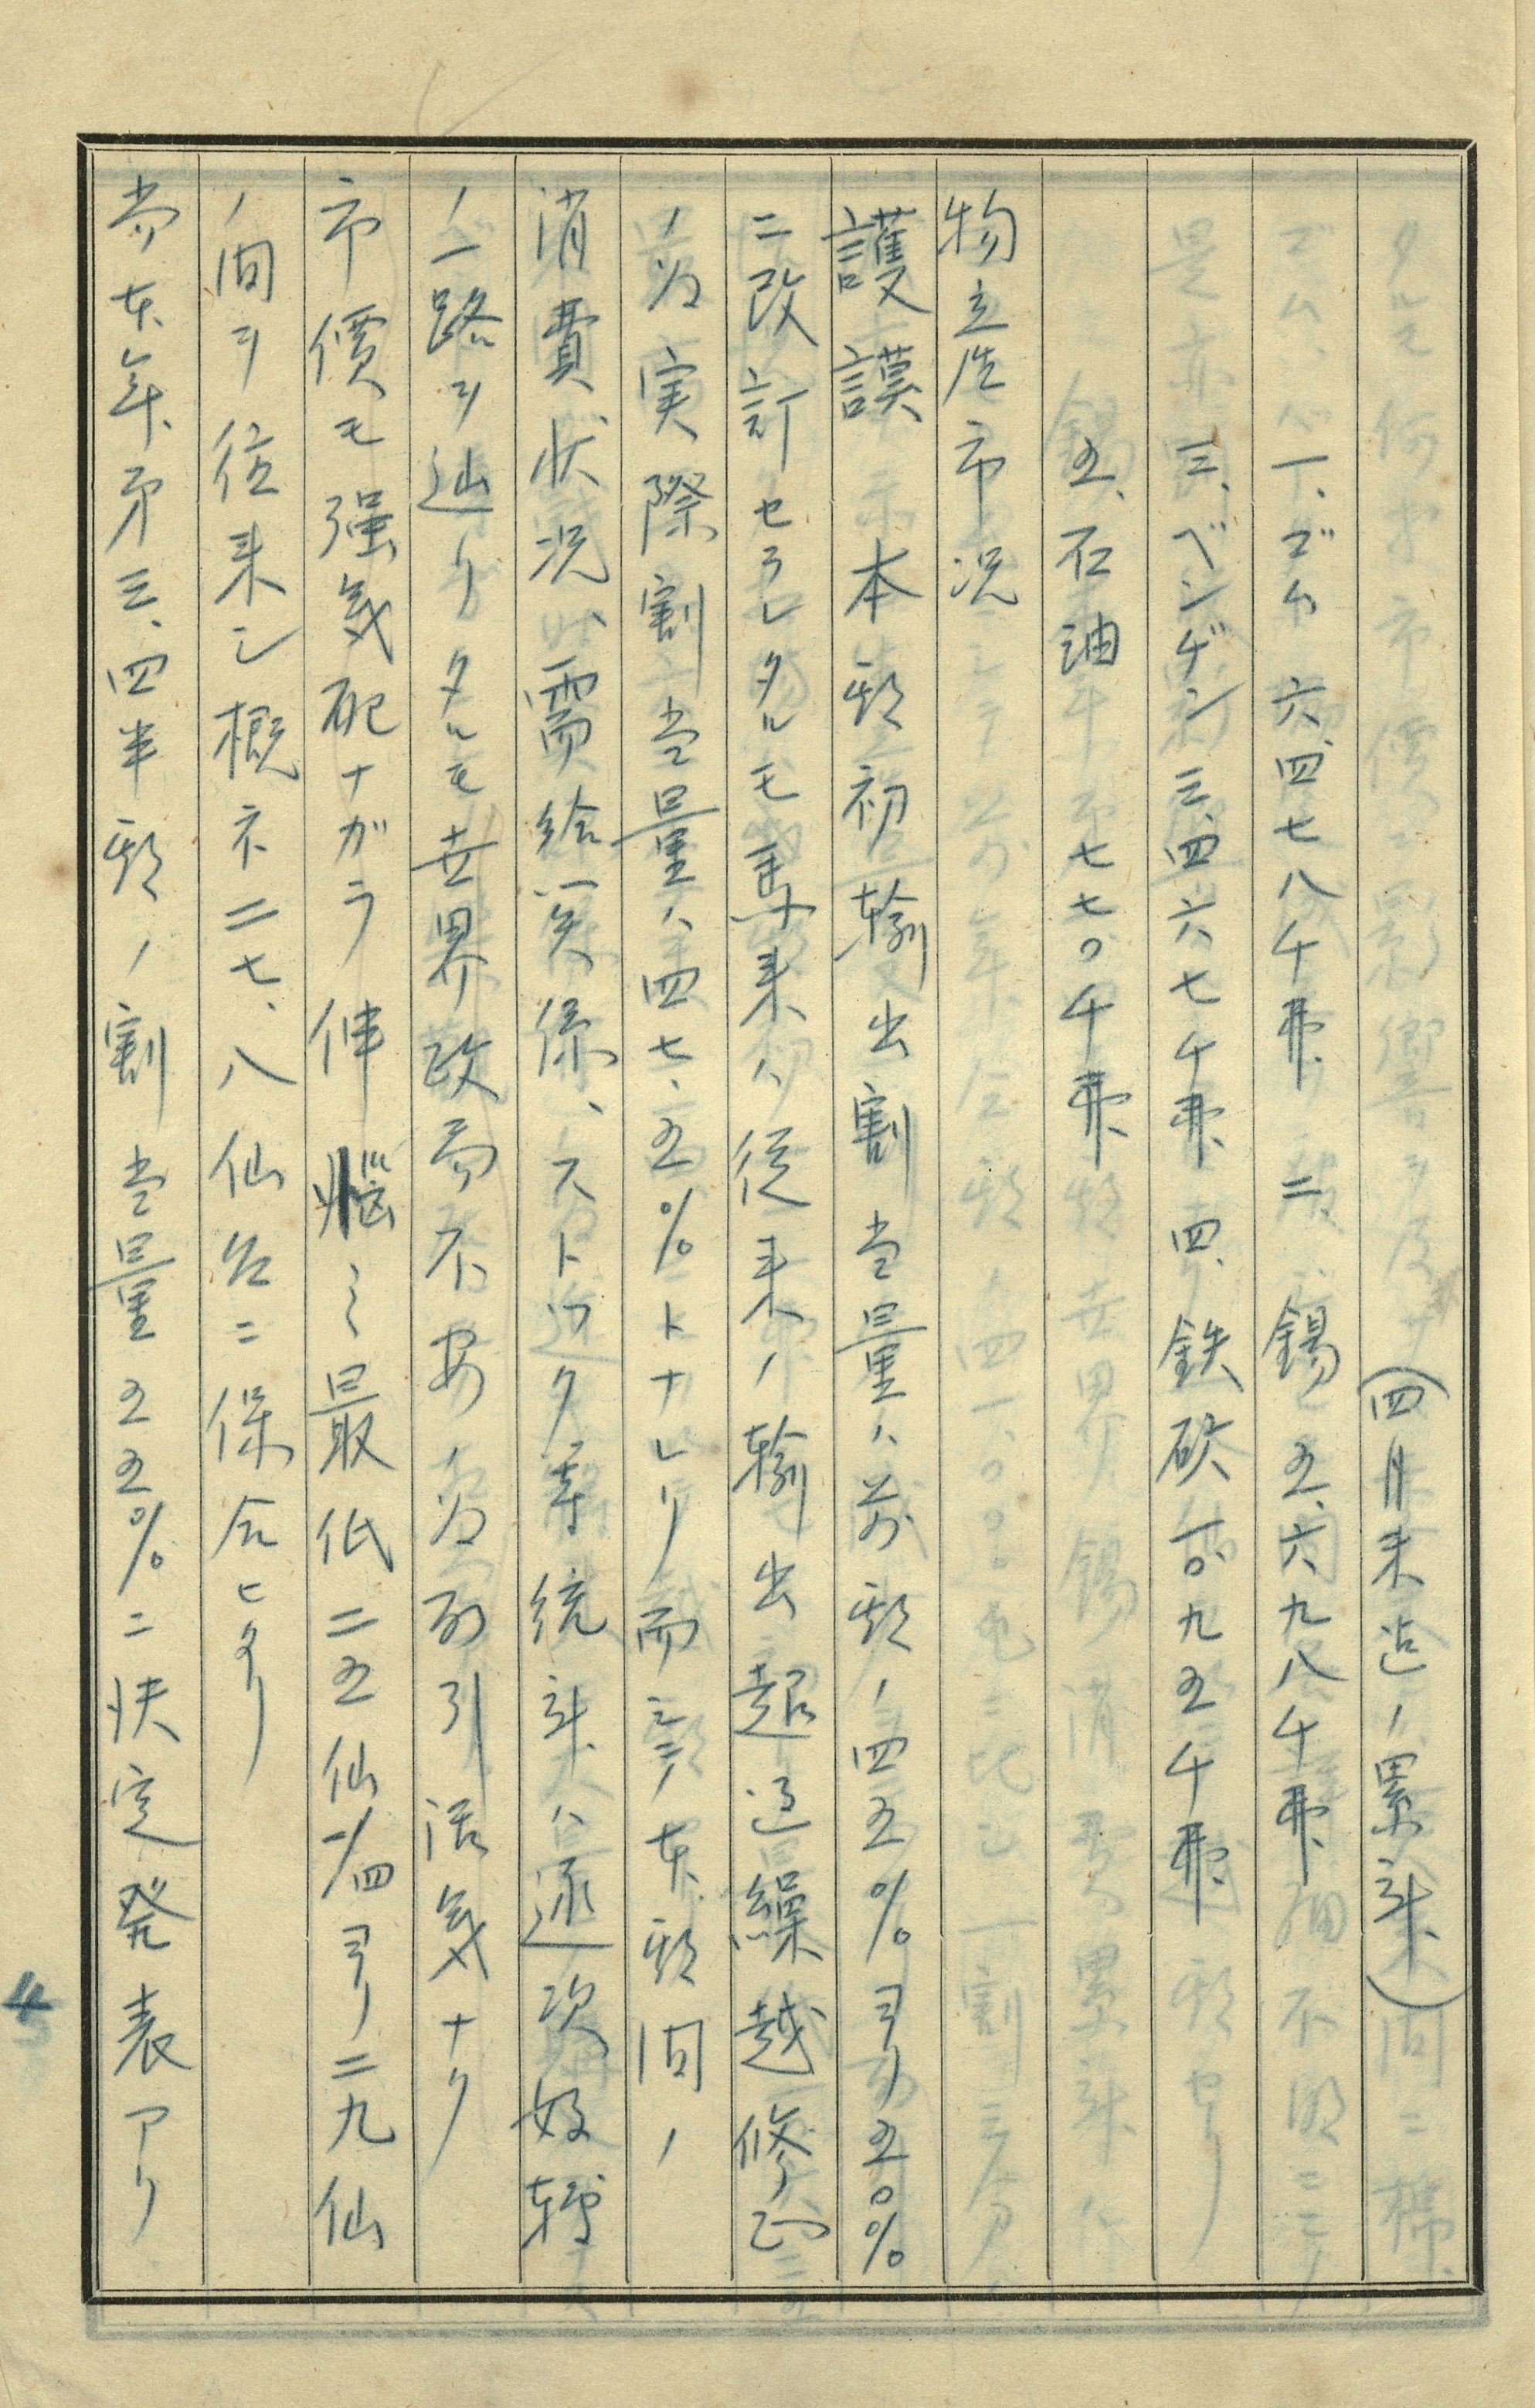 (四月末迄ノ累計)
一、ゴム 六、四七八千弗 二 錫 五、六九八千弗
三、ベンゲン 三、四六七千弗 四、鉄砿 一〇、九五五千弗
五、石油 七七〇千弗
物産市況
護謨 本期初輸出割当量ハ前期ノ四五%ヨリ五〇%
ニ改訂セラレタルモ従来ノ輸出超過繰越修正
ノ為実際割当量ハ四七、五%トナレリ而シテ本期間ノ
消費状況、需給関係、ストック等統計ハ逐次好転
ノ一路ヲ辿リタルモ世界政局不安ノ為取引活気ナク
市價モ强気配ナガラ伸悩ミ最低二五仙一/四ヨリ二九仙
ノ間ヲ往来シ概ネ二七、八仙台ニ保合ヒタリ
尚本年第三、四半期ノ割当量五五%ニ決定発表アリ
4